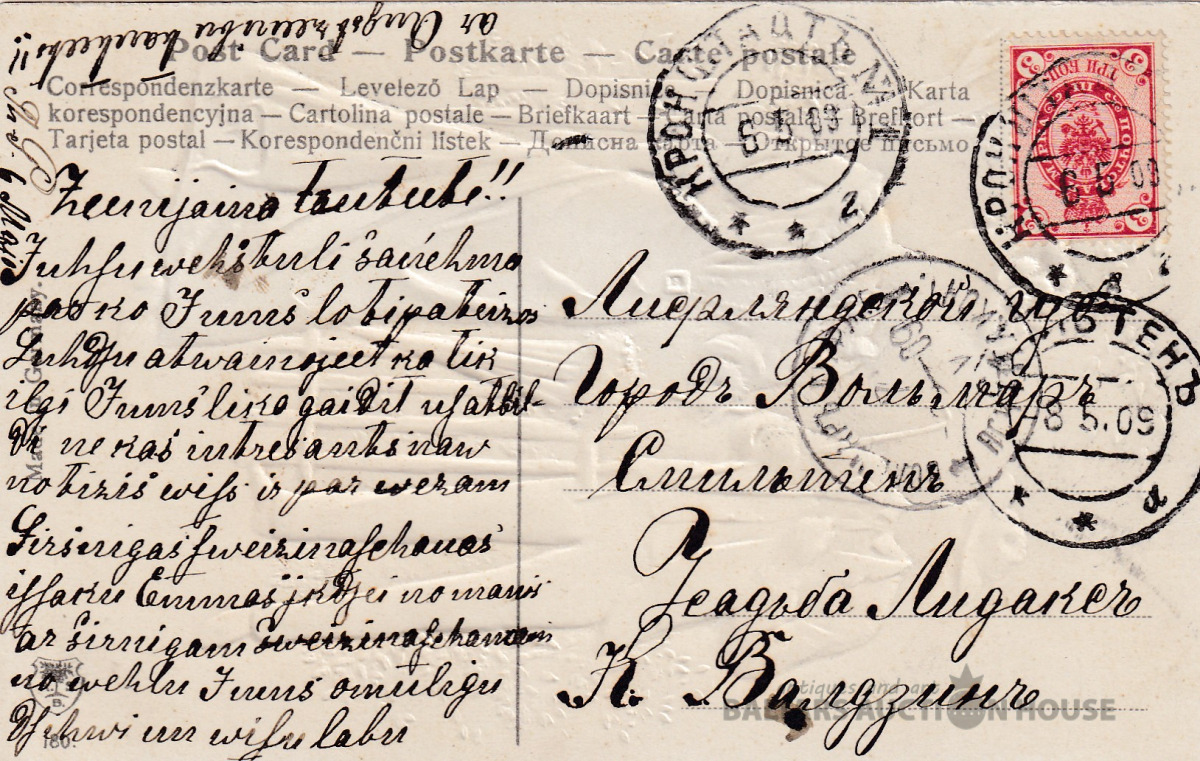 Post Card — Postkarte — Carte postale
Correspondenzkarte — Levelező Lap — Dopisnice — Dopisnica — Karta
korespondencyjna — Cartolina postale — Briefkaart — Carta postala — Brefkort —
Tarjeta postal — Korespondenčni listek — Дописна карта — Открытое письмо
6 Maijā
Zeenijama
Juhsu wehstuli saņehmu
par ko Jums loti pateizos
Luhdzu atwainojeet ka tik
ilgi Jums liku gaidit us atbil-
di ne kas intresants naw
notizis wiss ir par wezam
Sirsnigas sweizinaschanas
issaku Emmas jkdzei no manis
ar sirnigam sweizinaschanam
no wehlu Jums omuligu
dsihwi un wisu labu
180.
Лифляндской губ
Городъ Вольмаръ
Смильтенъ
Усадьба Лидаксъ
К. Валдзинъ
КРОНШТАДТЪ
6 5.09
2
ТРИ КОП
3
3
3
6 5 09
8 5.09
а
BALTARS AUCTION HOUSE